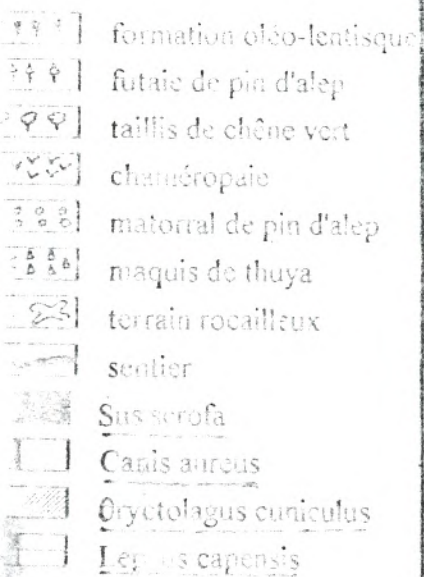 formation oléo-lentisque
futaie de pin d'alep
taillis de chêne vert
chaméropaie
matorral de pin d'alep
maquis de thuya
terrain rocailleux
sentier
Sus scrofa
Canis aureus
Oryctolagus cuniculus
Lepus capensis